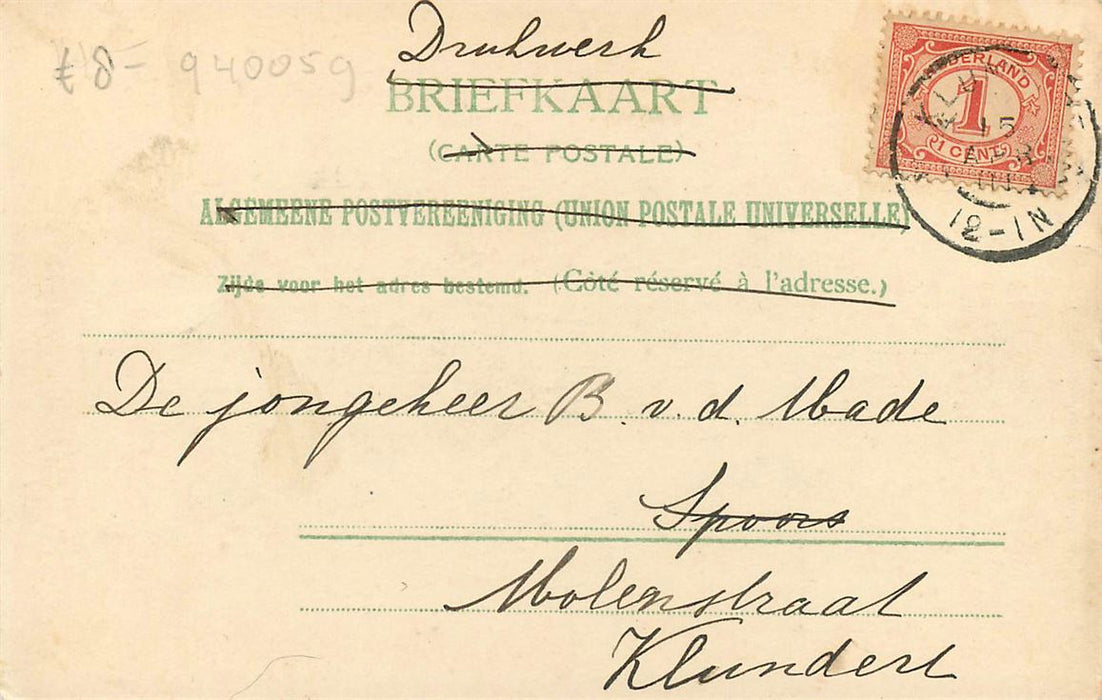 Drukwerk
f 8- 940059
BRIEFKAART
(CARTE POSTALE)
ALGEMEENE POSTVEREENIGING (UNION POSTALE UNIVERSELLE)
Zijde voor het adres bestemd. (Côté réservé à l'adresse.)
NEDERLAND
1
1 CENT
15
APR
12-1N
De jongeheer B. v. d. Made
Spoors
Molenstraat
Klundert